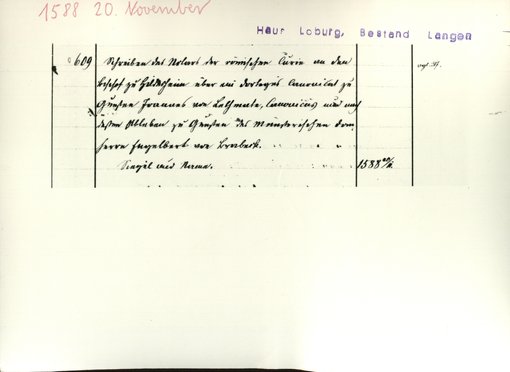 1588 20. November
Haus Loburg, Bestand Langen
609 Schreiben des Notars der römischen Curie an den
Bischof zu Hildesheim über ein dortiges Canonicat zu
Gunsten Joannes von Lethmate, Canonicus und nach
dessen Ableben zu Gunsten des Münsterischen Dom-
herrn Engelbert von Brabeck.
Siegel und Name. 1588 20/11